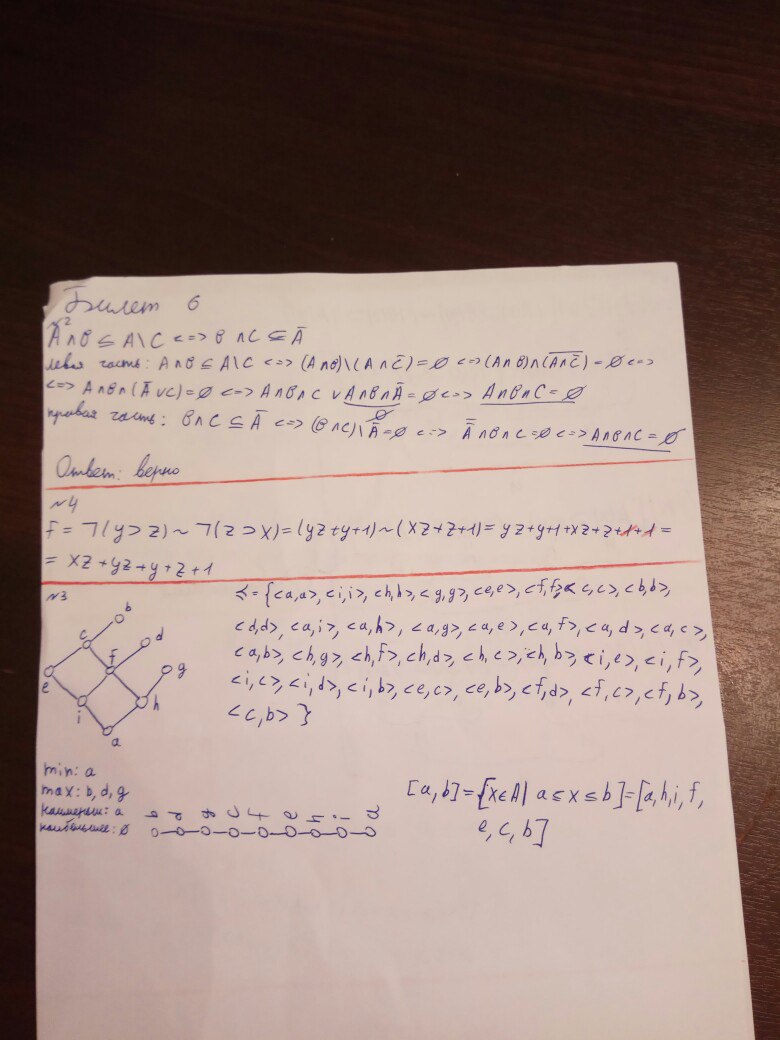 Билет 6
№2
A∩B ⊆ A\C <=> B ∩C ⊆ Ā
левая часть: A∩B ⊆ A\C <=> (A∩B)\(A∩C̄)=∅ <=> (A∩B)∩(\overline{A∩C̄}) = ∅ <=>
<=> A∩B∩(Ā∪C)=∅ <=> A∩B∩C ∪ A∩B∩Ā = ∅ <=> A∩B∩C = ∅
∅
правая часть: B∩C ⊆ Ā <=> (B∩C)\Ā=∅ <=> \overline{Ā}∩B∩C=∅ <=> A∩B∩C = ∅
Ответ: верно
№4
f = ¬(y⊃z) ~ ¬(z⊃x) = (yz+y+1) ~ (xz+z+1) = yz+y+1+xz+z+1+1 =
= xz+yz+y+z+1
№3
≼ = {<a,a>, <i,i>, <h,h>, <g,g>, <e,e>, <f,f>, <c,c>, <b,b>,
<d,d>, <a,i>, <a,h>, <a,g>, <a,e>, <a,f>, <a,d>, <a,c>,
<a,b>, <h,g>, <h,f>, <h,d>, <h,c>, <h,b>, <i,e>, <i,f>,
<i,c>, <i,d>, <i,b>, <e,c>, <e,b>, <f,d>, <f,c>, <f,b>,
<c,b>}
b
c
d
f
g
e
i
h
a
min: a
max: b, d, g
наименьш: a
наибольшее: ∅
[a,b] = {x∈A| a≤x≤b} = [a,h,i,f,
e, c, b]